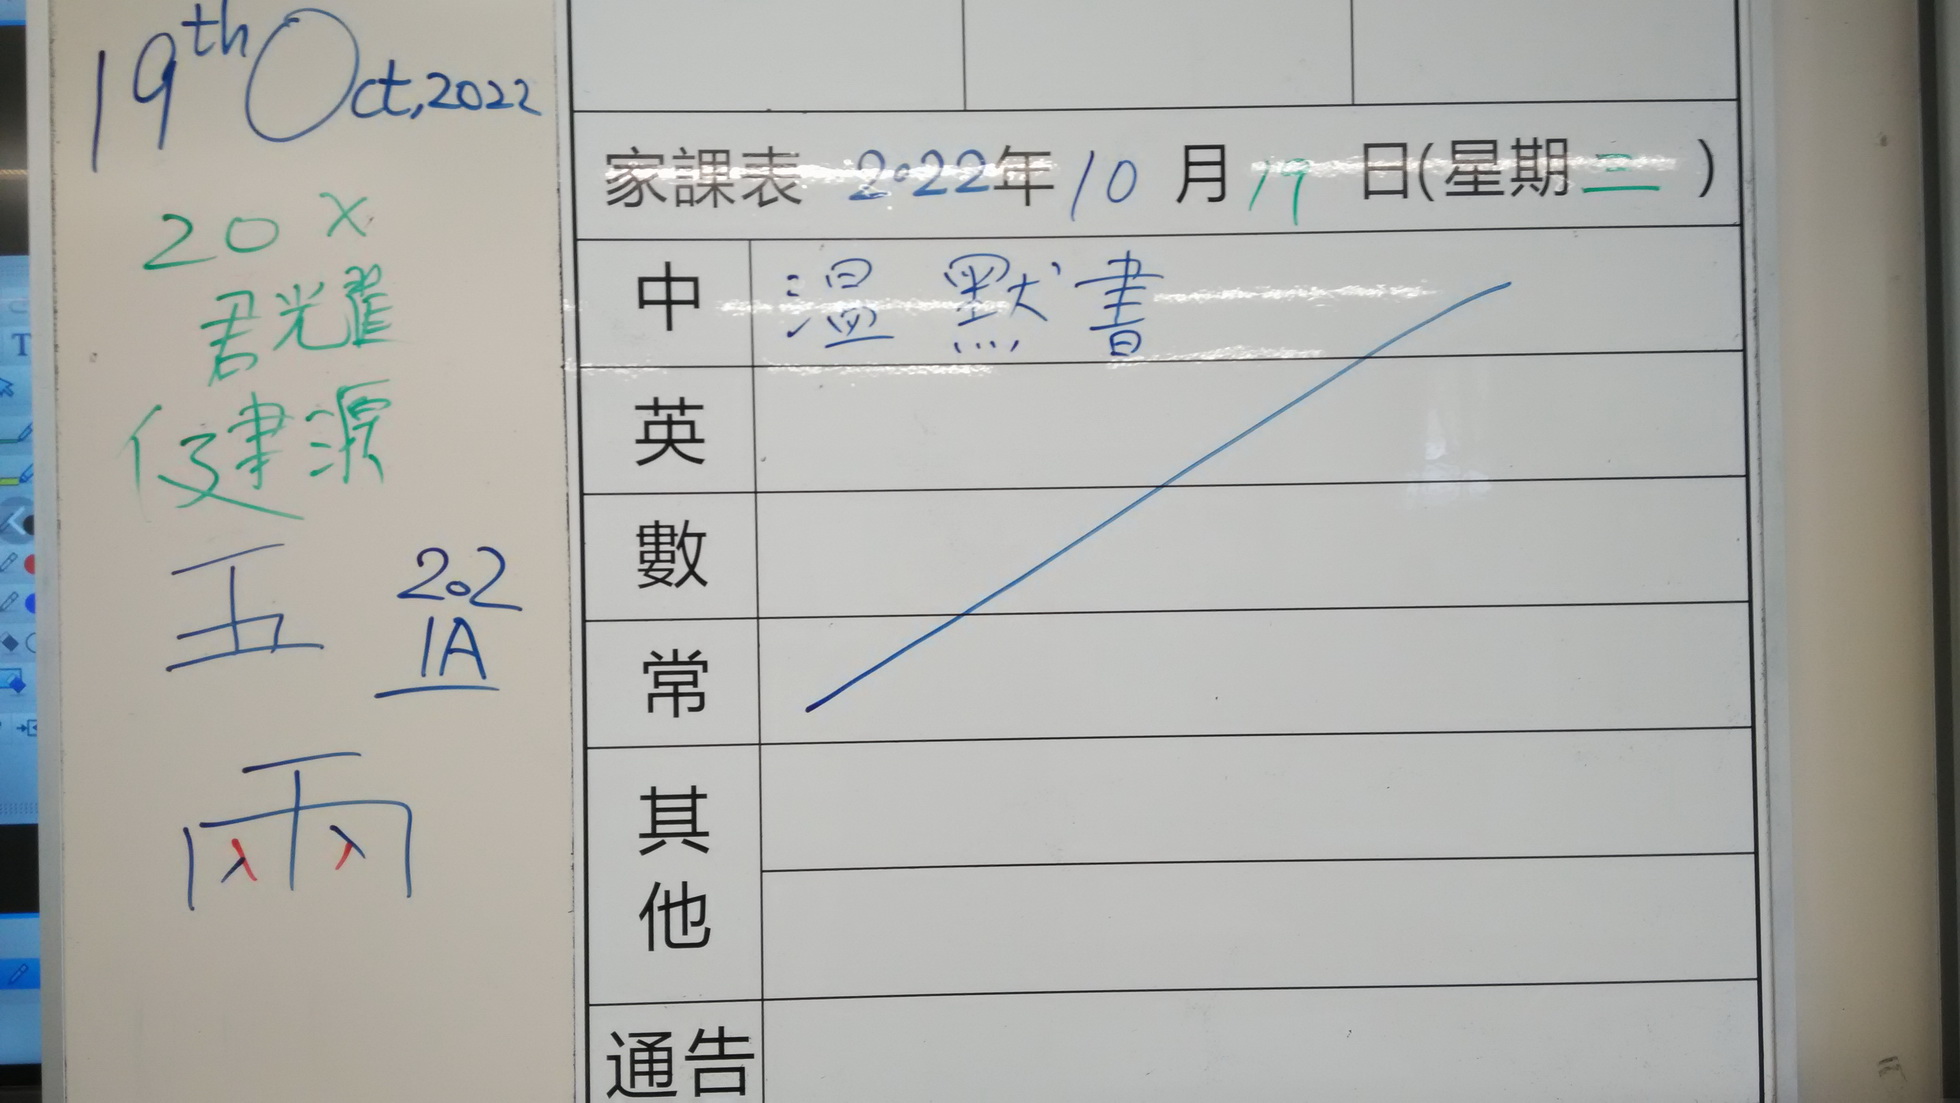 19th Oct, 2022
20 X
君光耀
健源
五
202
1A
兩
家課表 2022年10月19日(星期三)
中 溫默書
英
數
常
其他
通告